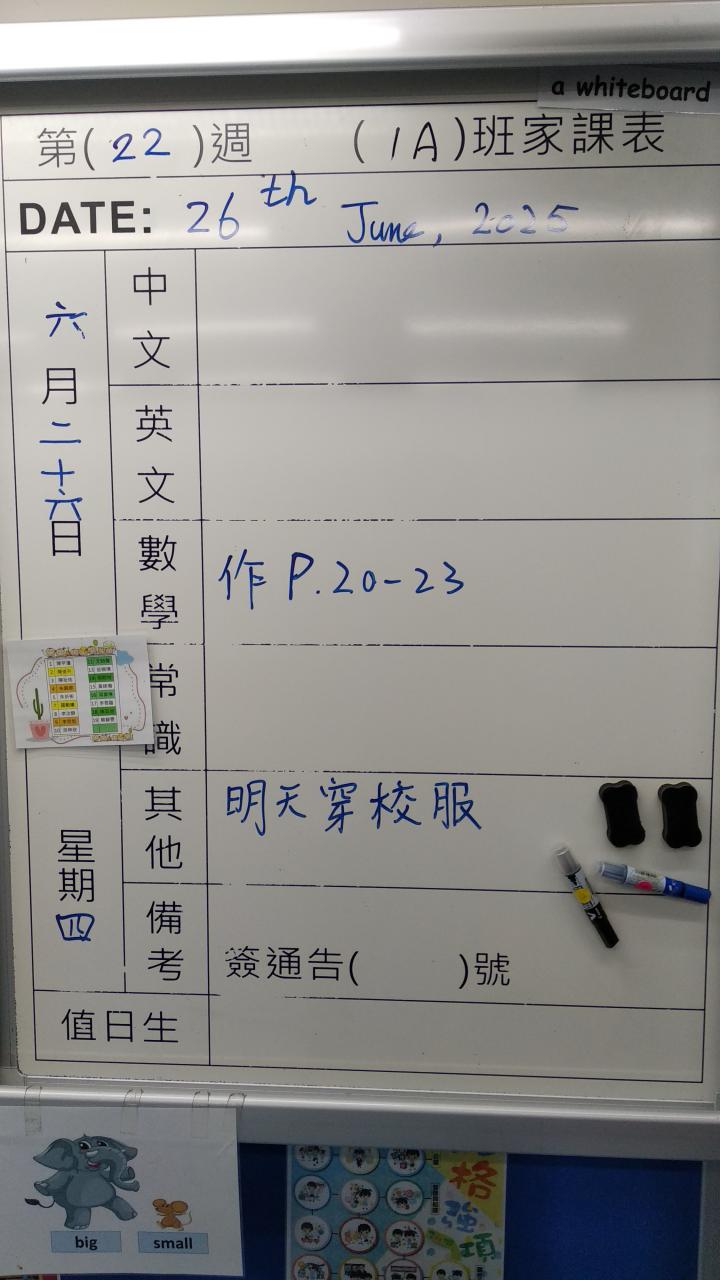 a whiteboard
第(22)週 (1A)班家課表
DATE: 26th June, 2025
六月二十六日
星期四
中文
英文
數學 作 P.20-23
常識
其他 明天穿校服
備考 簽通告( )號
值日生
big small
格
強
項